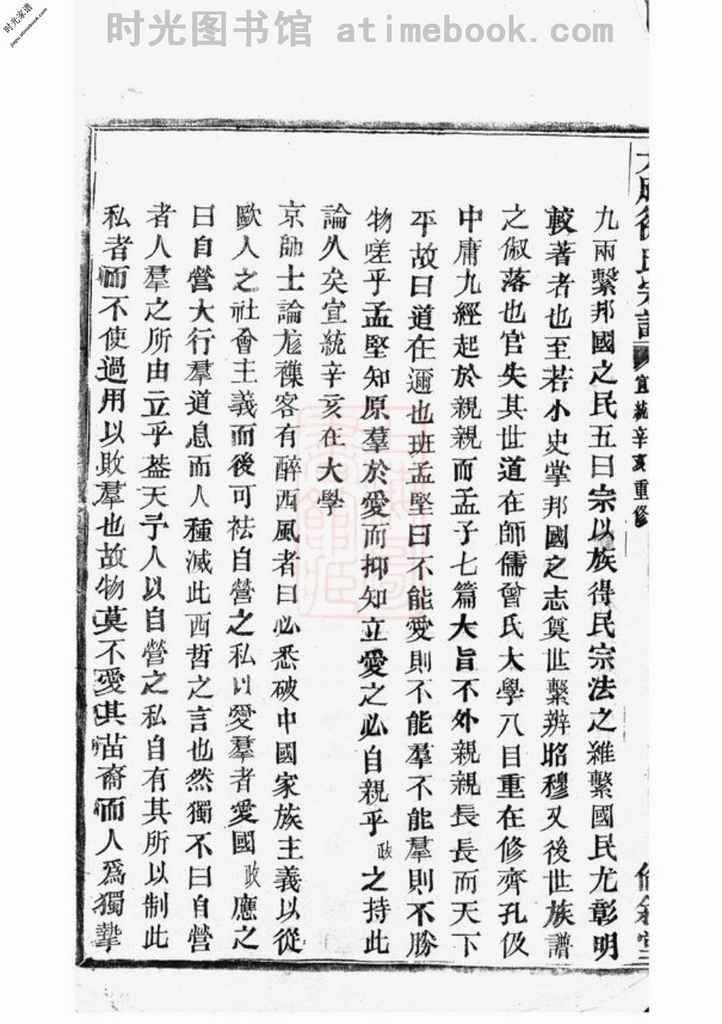 时光图书馆 atimebook.com
时光家谱
九兩繫邦國之民五曰宗以族得民宗法之維繫國民尤彰明
較著者也至若小史掌邦國之志奠世繫辨昭穆又後世族譜
之俶落也官失其世道在師儒曾氏大學八目重在修齊孔伋
中庸九經起於親親而孟子七篇大旨不外親親長長而天下
平故曰道在邇也班孟堅曰不能愛則不能羣不能羣則不勝
物嗟乎孟堅知原羣於愛而抑知立愛之必自親乎政之持此
論久矣宣統辛亥在大學
京師士論尨襍客有醉西風者曰必悉破中國家族主義以從
歐人之社會主義而後可祛自營之私以愛羣者愛國政應之
曰自營大行羣道息而人種滅此西哲之言也然獨不曰自營
者人羣之所由立乎葢天予人以自營之私自有其所以制此
私者而不使過用以敗羣也故物莫不愛其苗裔而人爲獨摯
氏宗譜 宣統辛亥重修